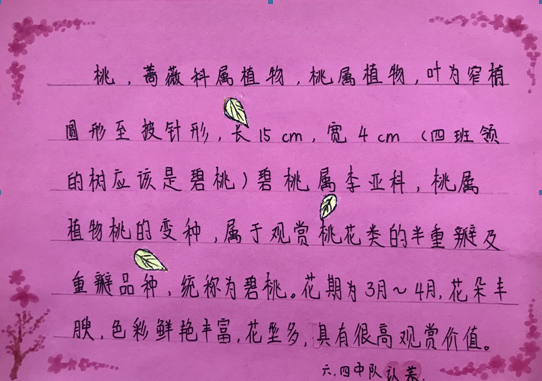 桃，蔷薇科属植物，桃属植物，叶为窄椭
圆形至披针形，长15cm，宽4cm（四班领
的树应该是碧桃）碧桃属李亚科，桃属
植物桃的变种，属于观赏桃花类的半重瓣及
重瓣品种，统称为碧桃。花期为3月～4月，花朵丰
腴，色彩鲜艳丰富，花型多，具有很高观赏价值。
六.四中队认养.